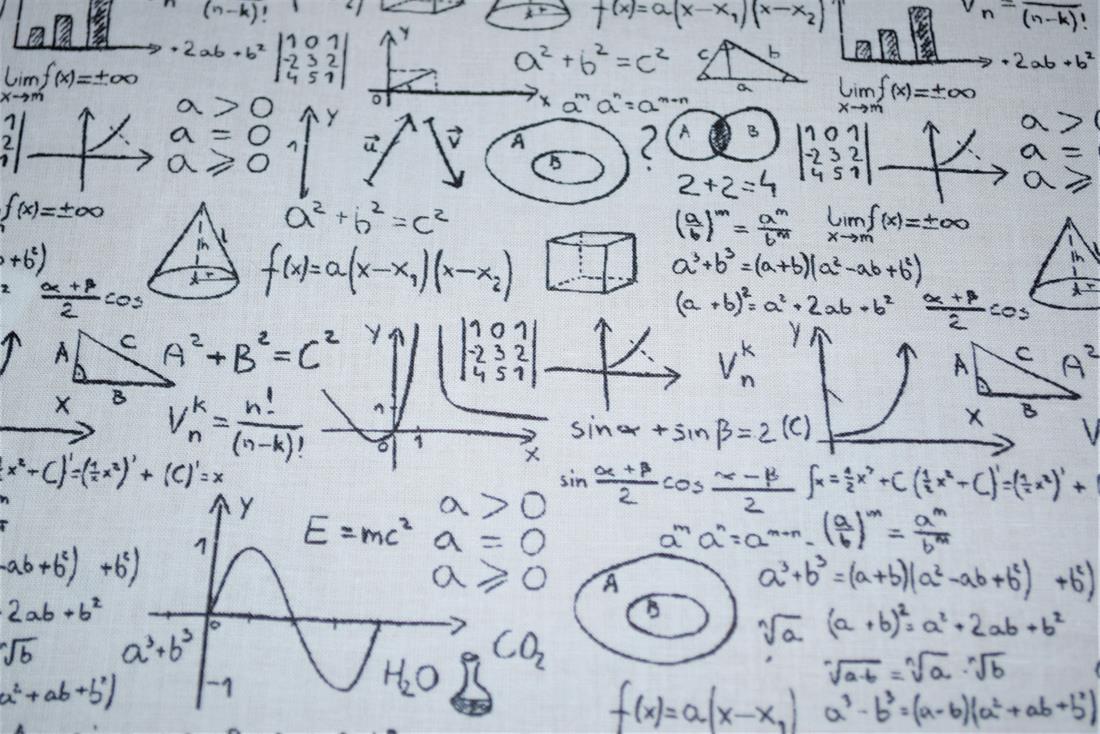 (n-k)!
f(x)=a(x-x₁)(x-x₂)
Vn = (n-k)!
+2ab+b²
1 0 1
-2 3 2
4 5 1
Y
0
X
a²+b²=c²
c b
a
+2ab+b²
Lim f(x)=±∞
x→m
aᵐ aⁿ=aᵐ⁺ⁿ
Lim f(x)=±∞
x→m
1
2
1
a > 0
a = 0
a ⩾ 0
Y
1
u⃗ v⃗
A
B
?
A B
2+2=4
1 0 1
-2 3 2
4 5 1
a >
a =
a ⩾
f(x)=±∞
a²+b²=c²
(a/b)ᵐ = aᵐ/bᵐ
Lim f(x)=±∞
x→m
+b²)
h l
r
f(x)=a(x-x₁)(x-x₂)
a³+b³=(a+b)(a²-ab+b²)
h
r
α+β/2 cos
(a+b)²=a²+2ab+b²
α+β/2 cos
A C
B
A²+B²=C²
Y
1 0 1
-2 3 2
4 5 1
Vₙᵏ
Y
A C
B
A²
X
Vₙᵏ = n!/(n-k)!
n
0 1
X
sinα+sinβ=2 (C)
X
x²+C)'=(½x²)'+(C)'=x
sin α+β/2 cos α-β/2
∫x=½x²+C (½x²+C)'=(½x²)'+
Y
1
E=mc²
a > 0
a = 0
a ⩾ 0
aᵐ aⁿ=aᵐ⁺ⁿ
(a/b)ᵐ = aᵐ/bᵐ
-ab+b²) +b²)
A
B
a³+b³=(a+b)(a²-ab+b²) +b²)
2ab+b²
0
ⁿ√a
(a+b)²=a²+2ab+b²
ⁿ√b
a³+b³
H₂O
CO₂
ⁿ√a·b = ⁿ√a · ⁿ√b
a²+ab+b²)
-1
f(x)=a(x-x₁)
a³-b³=(a-b)(a²+ab+b²)